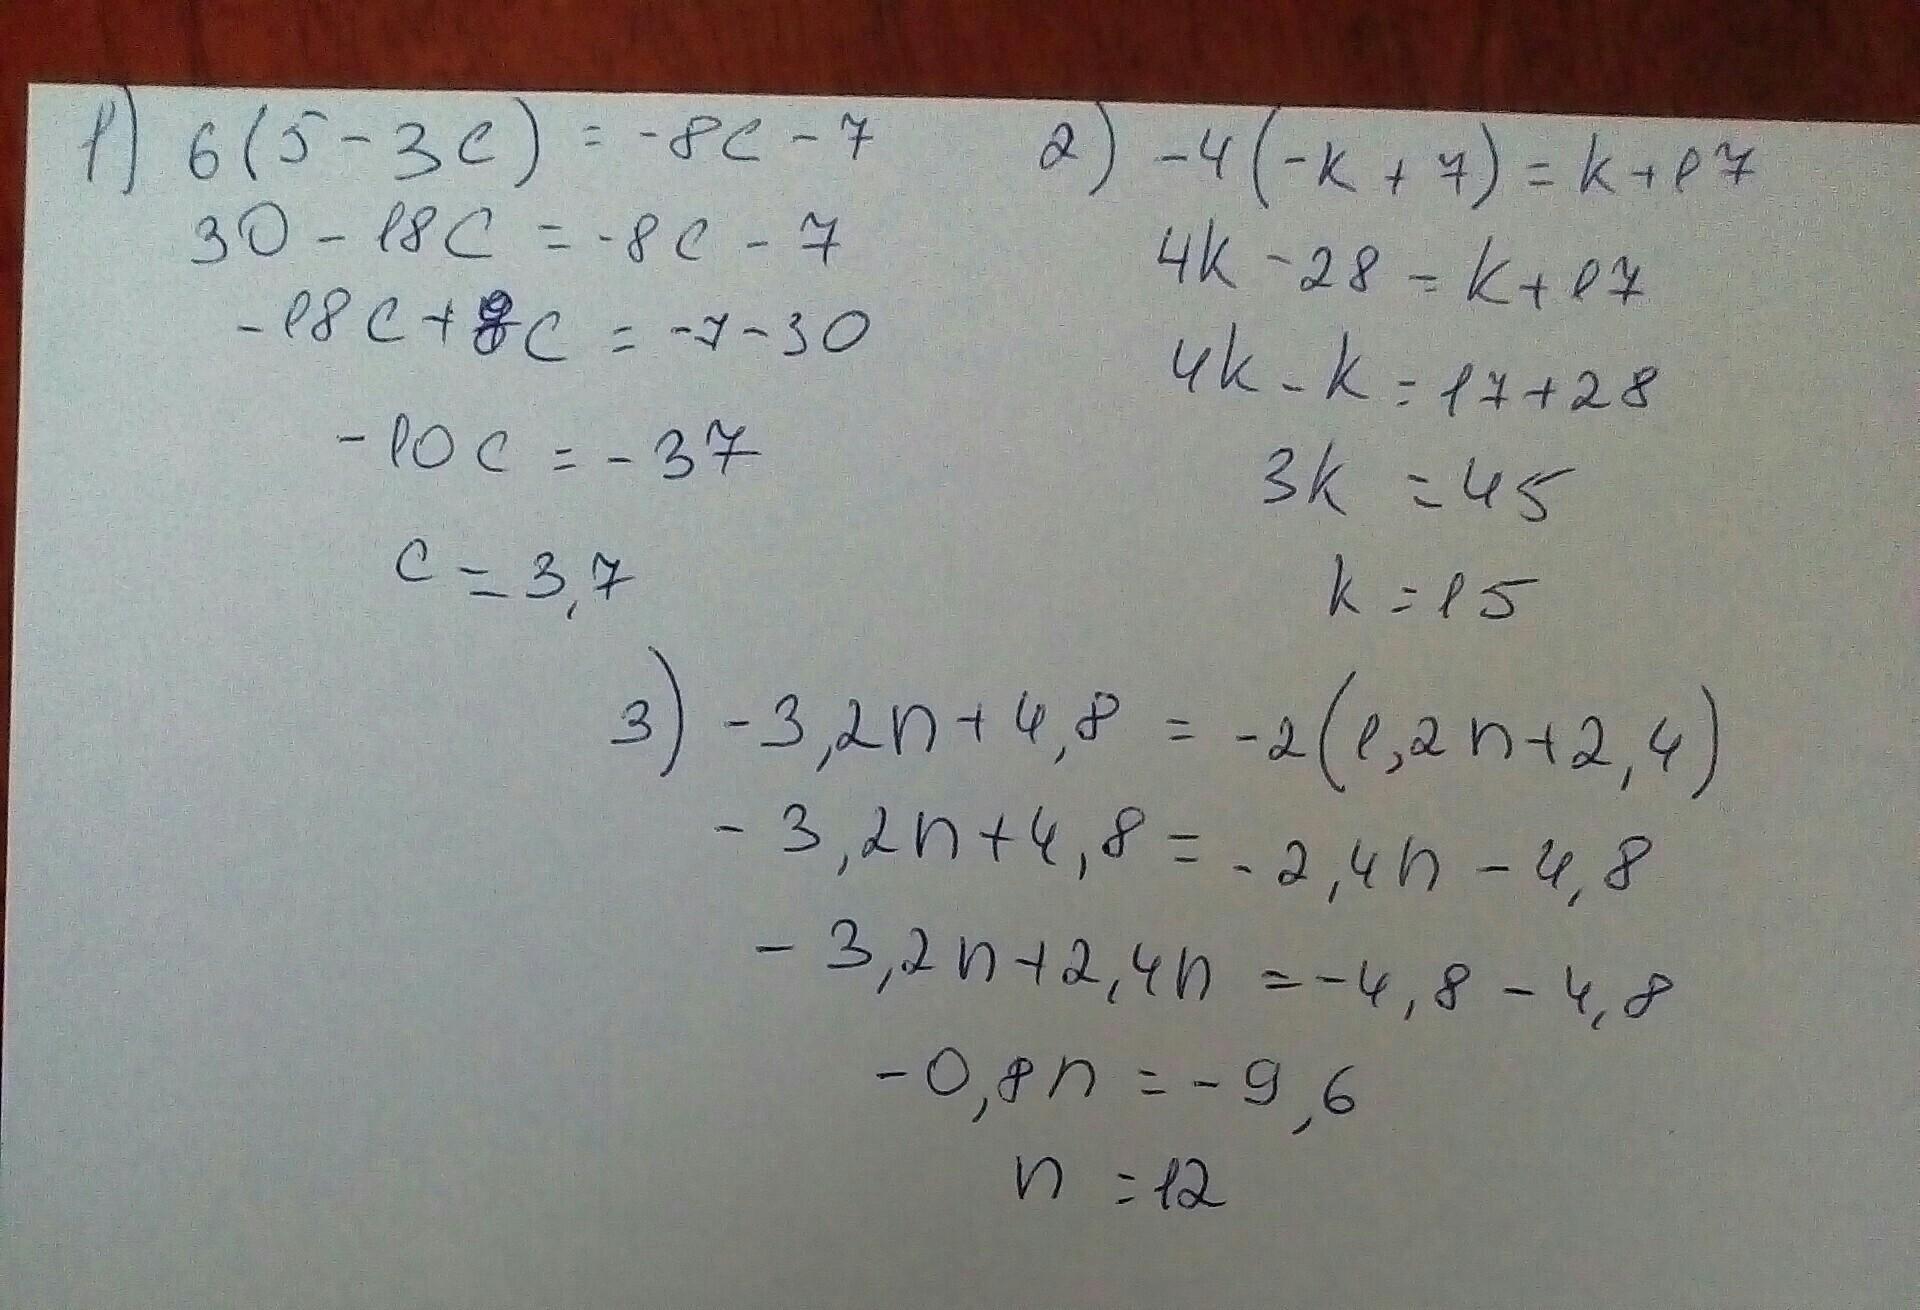 1) 6(5-3c) = -8c-7
30-18c = -8c-7
-18c+8c = -7-30
-10c = -37
c = 3,7
2) -4(-k+7) = k+17
4k-28 = k+17
4k-k = 17+28
3k = 45
k = 15
3) -3,2n+4,8 = -2(1,2n+2,4)
-3,2n+4,8 = -2,4n-4,8
-3,2n+2,4n = -4,8-4,8
-0,8n = -9,6
n = 12